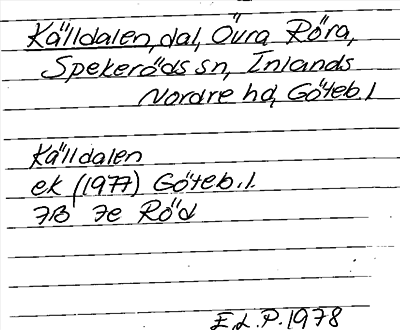 Källdalen, dal, Övra Röra,
Spekeröds sn, Inlands
Nordre hd, Göteb. l
Källdalen
ek (1977) Göteb. l.
7B 7e Röd
E.L.P. 1978